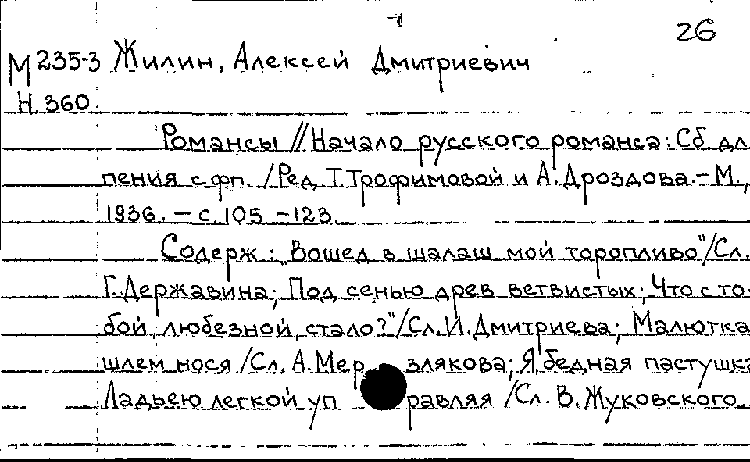 26
М 235-3 Жилин, Алексей Дмитриевич
Н. 360.
Романсы // Начало русского романса: Сб дл
пения с фп. / Ред Т. Трофимовой и А. Дроздова. – М.,
1936. – с. 105 – 123.
Содерж.: „Вошед в шалаш мой торопливо"/Сл.
Г. Державина; Под сенью древ ветвистых; „Что с то-
бой, любезной, стало?"/Сл. И. Дмитриева; Малютка
шлем нося / Сл. А. Мерзлякова; Я бедная пастушка
Ладьею легкой управляя / Сл. В. Жуковского